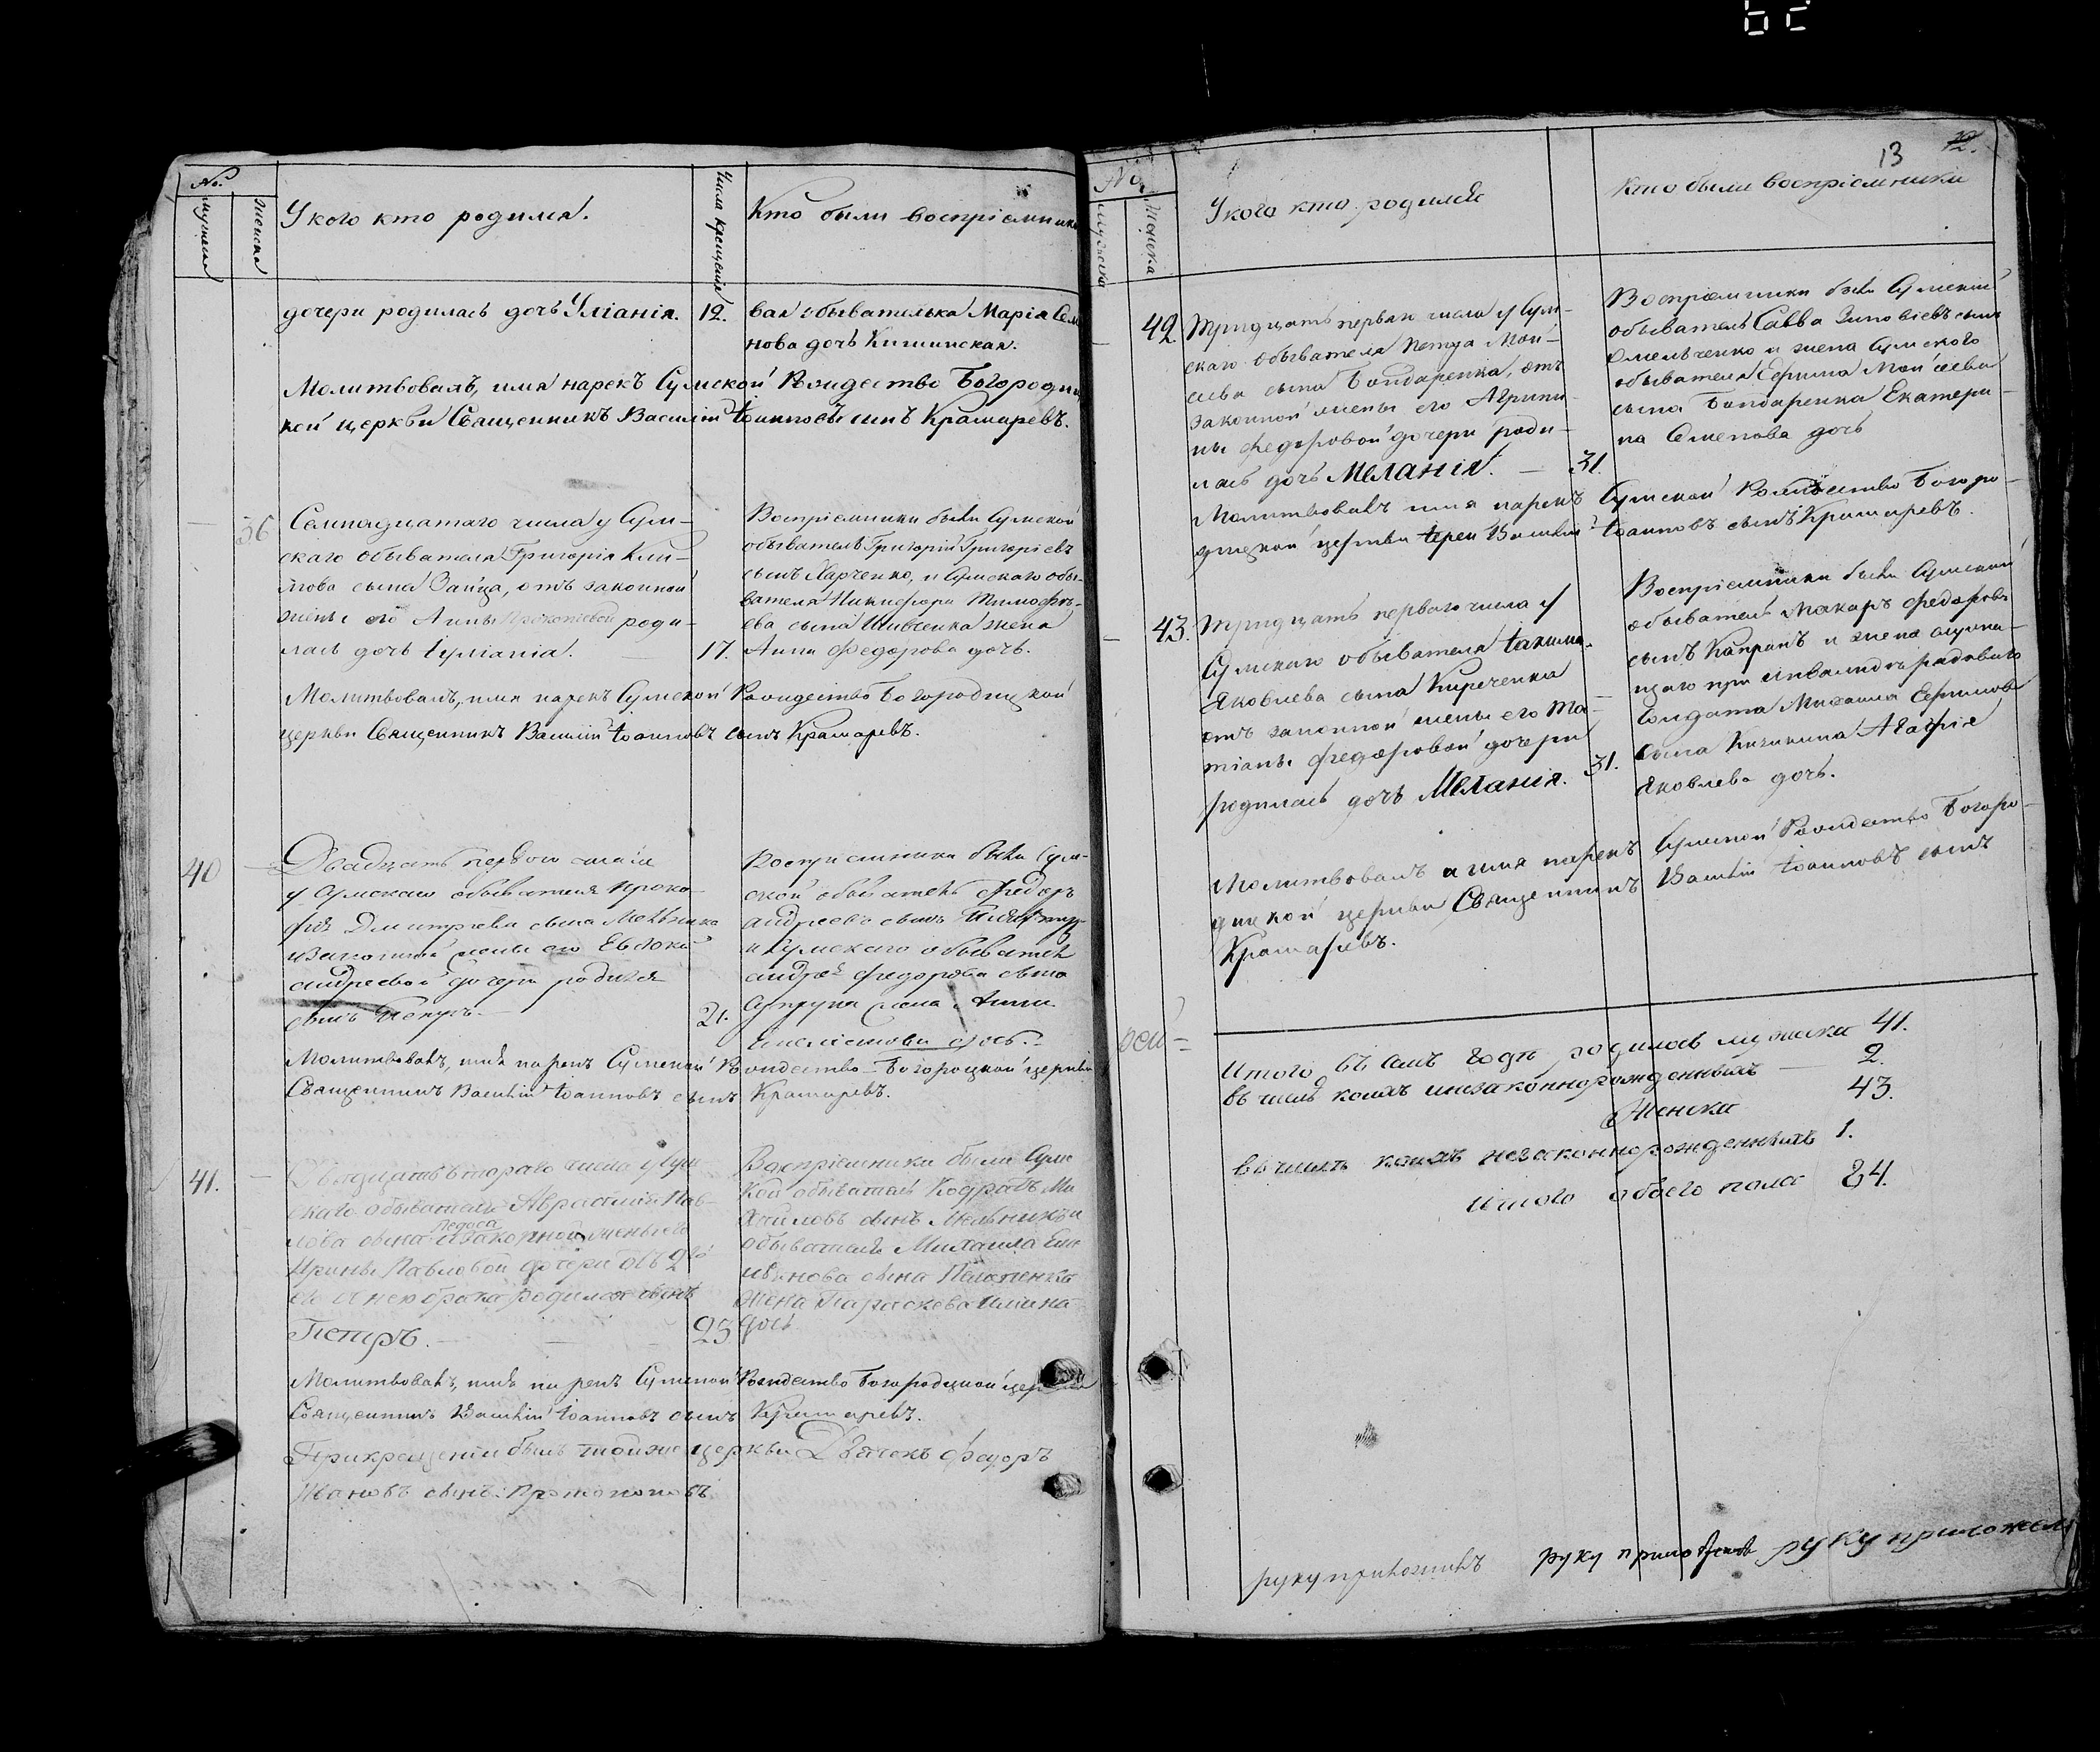 62
№.
мужеска
женска
У кого кто родился.
Числа крещенія
Кто были воспріемники
дочери родилась дочь Уліанія. 12.
вая обывателька Марія Семе
нова дочь Кишинская.
Молитвовалъ, имя нарекъ Сумской Рождество Богородиц
кой церкви Священникъ Василій Іоанновъ сынъ Крамаревъ.
36
Семнадцатаго числа у Сум-
скаго обывателя Григорія Кли-
мова сына Зайца, отъ законной
жены его Анны Прокопіевой роди-
лась дочь Іуліанія. — 17.
Воспріемники были Сумской
обыватель Григорій Григоріевъ
сынъ Харченко, и Сумскаго обы-
вателя Никифора Тимофѣ-
ева сына Шивченка жена
Анна Федорова дочь.
Молитвовалъ, имя нарекъ Сумской Рождество Богородицкой
церкви Священникъ Василій Іоанновъ сынъ Крамаревъ.
40
Двадцать первого числа
у Сумскаго обывателя Проко-
фія Дмитріева сына
жены его Евдокіи
андреевой дочери родился
сынъ Петръ. — 21.
Воспріемники были Сум-
ской обыватель Федоръ
андреевъ сынъ
и Сумскаго обывателя
андрея федорова сына
Супруна жена Анна
дочь.
Молитвовалъ, имя нарекъ Сумской Рождество-Богородицкой церкви
Священникъ Василій Іоанновъ сынъ Крамаревъ.
41.
Двадцать втораго числа у Сум
скаго обывателя Пав-
лова сына Педоса изаконной жены его
Ирины Павловой дочери отъ 2го
брака родился сынъ
Петръ. — 23
Воспріемники были Сумс
кой обыватель Кодратъ Ми
хайловъ сынъ Мельникъ и
обывателя Михаила
сына
жена Параскева Ильина
дочь
Молитвовалъ, имя нарекъ Сумской Рождество Богородицкой церкви
Священникъ Василій Іоанновъ сынъ Крамаревъ.
Прикрещеніи былъ тойже церкви Дьячекъ Федоръ
Ивановъ сынъ Протопоповъ
13 12.
№.
мужеска
женска
У кого кто родился
Кто были воспріемники
42.
Тридцать перваго числа у Сум-
скаго обывателя Петра Мой-
сева сына Бондаренка, отъ
законной жены его Агрипи-
ны Федоровой дочери роди-
лась дочь Меланія. — 31.
Воспріемники были Сумской
обыватель Савва Зиновіевъ сынъ
Омельченко и жена Сумского
обывателя Ефима Мойсеева
сына Бондаренка Екатери-
на Семенова дочь
Молитвовалъ имя нарекъ Сумской Рождество Богоро-
дицкой церкви Іерей Василій Іоанновъ сынъ Крамаревъ.
43.
Тридцать перваго числа у
Сумскаго обывателя Іакима
Яковлева сына Киреченка
отъ законной жены его Та-
тіаны Федоровой дочери
родилась дочь Меланія. 31.
Воспріемники были Сумской
обыватель Макаръ Федоровъ
сынъ Капранъ и жена служа-
щаго при инвалидъ рядоваго
Солдата Михаила Ефимова
сына Кичикина Агафія
Яковлева дочь.
Молитвовалъ и имя нарекъ Сумской Рождество Богоро-
дицкой церкви Священникъ Василій Іоанновъ сынъ
Крамаревъ.
рей=
Итого въ семъ годѣ родилось мужеска 41.
въ числѣ коихъ инезаконнорожденныхъ — 2.
Женска 43.
въ числѣ коихъ незаконнорожденныхъ 1.
итого обоего пола 84.
руку приложилъ руку приложилъ руку приложилъ